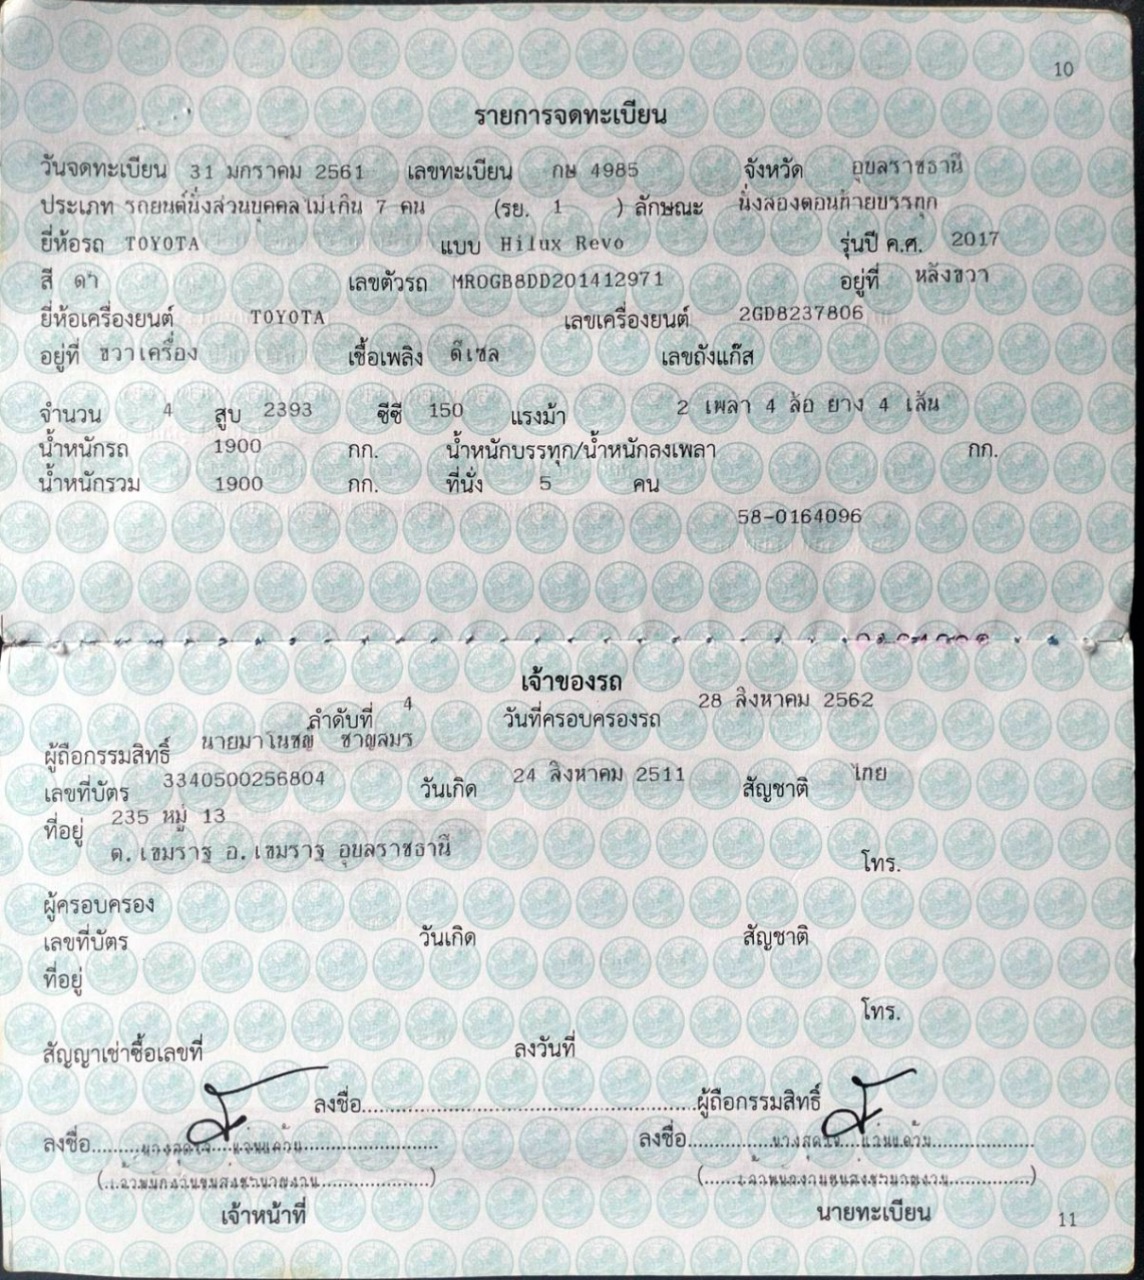 10
รายการจดทะเบียน
วันจดทะเบียน 31 มกราคม 2561 เลขทะเบียน กษ 4985 จังหวัด อุบลราชธานี
ประเภท รถยนต์นั่งส่วนบุคคลไม่เกิน 7 คน (รย. 1 ) ลักษณะ นั่งสองตอนท้ายบรรทุก
ยี่ห้อรถ TOYOTA แบบ Hilux Revo รุ่นปี ค.ศ. 2017
สี ดำ เลขตัวรถ MR0GB8DD201412971 อยู่ที่ หลังขวา
ยี่ห้อเครื่องยนต์ TOYOTA เลขเครื่องยนต์ 2GD8237806
อยู่ที่ ขวาเครื่อง เชื้อเพลิง ดีเซล เลขถังแก๊ส
จำนวน 4 สูบ 2393 ซีซี 150 แรงม้า 2 เพลา 4 ล้อ ยาง 4 เส้น
น้ำหนักรถ 1900 กก. น้ำหนักบรรทุก/น้ำหนักลงเพลา กก.
น้ำหนักรวม 1900 กก. ที่นั่ง 5 คน
58-0164096
เจ้าของรถ
ลำดับที่ 4 วันที่ครอบครองรถ 28 สิงหาคม 2562
ผู้ถือกรรมสิทธิ์ นายมาโนชญ์ ชาญสมร
เลขที่บัตร 3340500256804 วันเกิด 24 สิงหาคม 2511 สัญชาติ ไทย
ที่อยู่ 235 หมู่ 13
ต.เขมราฐ อ.เขมราฐ อุบลราชธานี
โทร.
ผู้ครอบครอง
เลขที่บัตร วันเกิด สัญชาติ
ที่อยู่
โทร.
สัญญาเช่าซื้อเลขที่ ลงวันที่
ลงชื่อ ผู้ถือกรรมสิทธิ์
ลงชื่อ ลงชื่อ
(เจ้าพนักงานขนส่งชำนาญงาน) (เจ้าพนักงานขนส่งชำนาญงาน)
เจ้าหน้าที่ นายทะเบียน
11